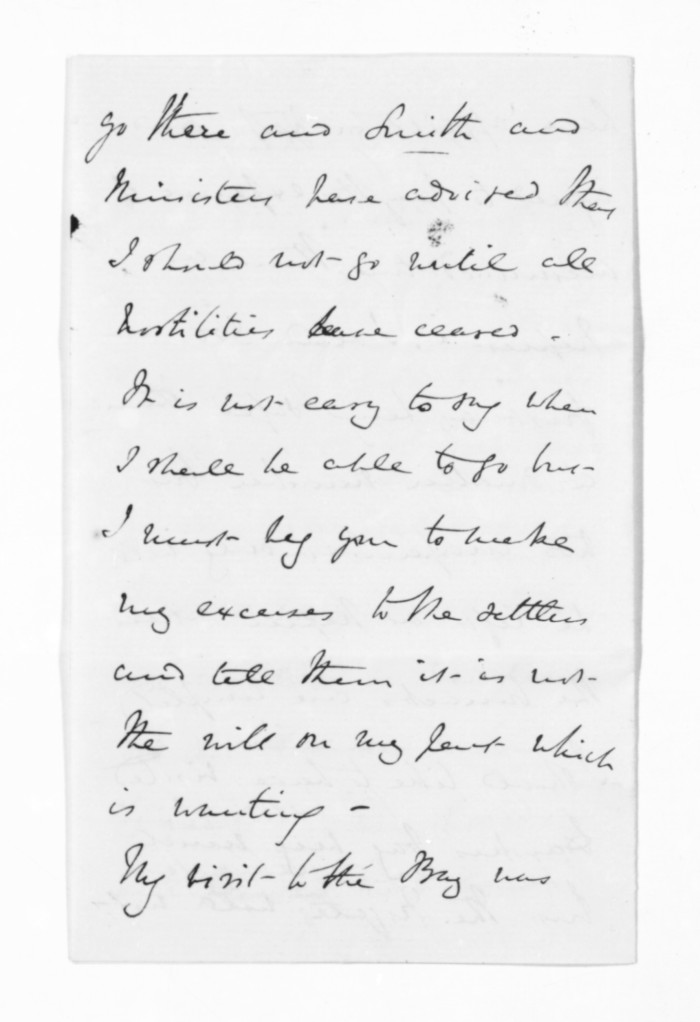 go there and Smith and
Ministers have advised that
I should not go until all
hostilities have ceased.
It is not easy to say when
I shall be able to go but
I must beg you to make
my excuses to the settlers
and tell them it is not
the will on my part which
is wanting -
My visit to the Bay was